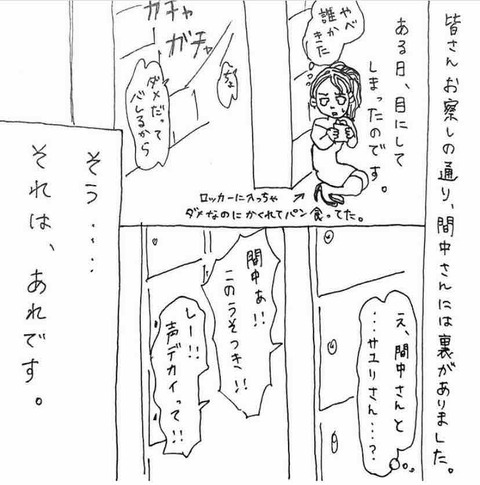 皆さんお察しの通り、間中さんには裏がありました。
ある日、目にして
しまったのです。
やべ
誰か
きた
ロッカーに入っちゃ
ダメなのにかくれてパン食ってた。
ガチャ
ガチャ
ダメだって
バレるから
え、間中さんと
…サユリさん…?
間中ぁ!!
このうそつき!!
しー!!
声デカイって!!
そう‥‥
それは、あれです。